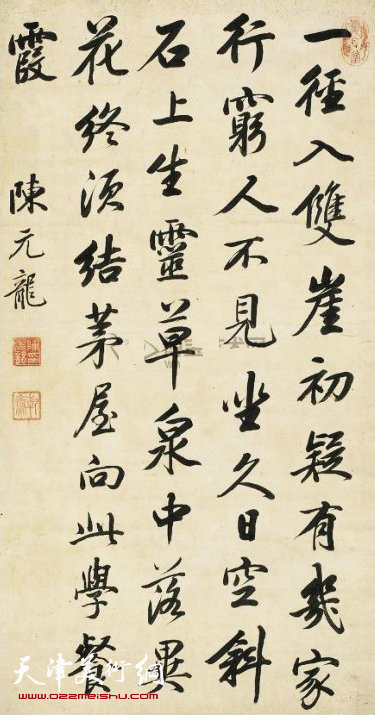 一徑入雙崖初疑有幾家
行窮人不見坐久日空斜
石上生靈草泉中落異
花終須結茅屋向此學餐
霞
陳元龍
天津美術網
www.022meishu.com